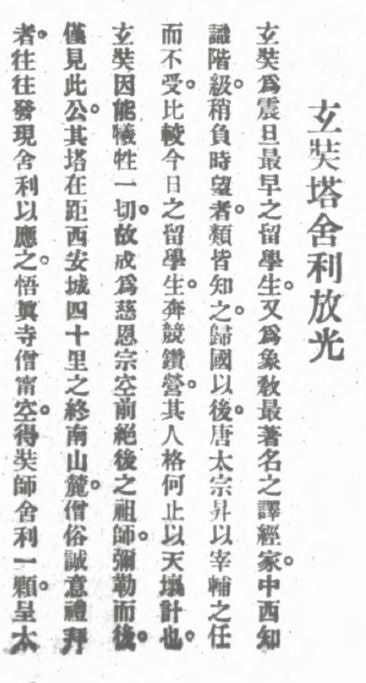 玄奘塔舍利放光
玄奘爲震旦最早之留學生。又爲象敎最著名之譯經家。中西知
識階級。稍負時望者。類皆知之。歸國以後。唐太宗昇以宰輔之任
而不受。比較今日之留學生。奔競鑽營。其人格何止以天壤計也。
玄奘因能犧牲一切。故成爲慈恩宗空前絕後之祖師。彌勒而後。
僅見此公。其塔在距西安城四十里之終南山麓。僧俗誠意禮拜
者。往往發現舍利以應之。悟眞寺僧甯空。得奘師舍利一顆。呈太